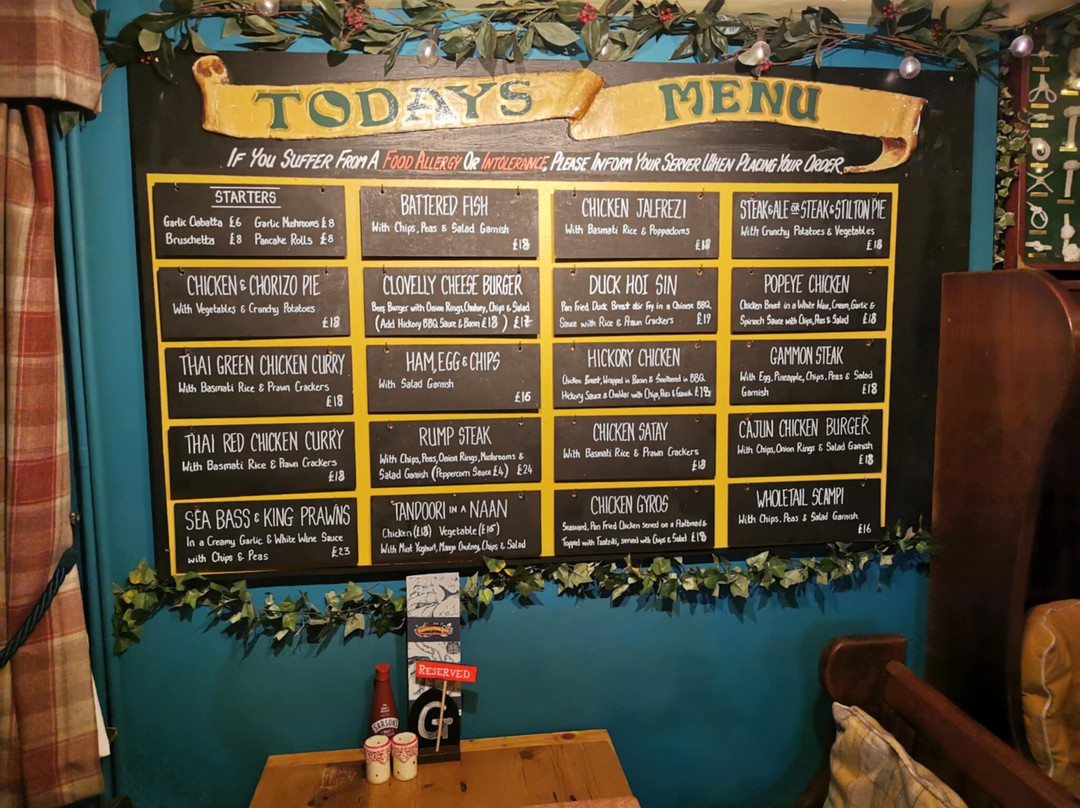 TODAYS MENU
IF YOU SUFFER FROM A FOOD ALLERGY OR INTOLERANCE, PLEASE INFORM YOUR SERVER WHEN PLACING YOUR ORDER.
STARTERS
Garlic Ciabatta £6 Garlic Mushrooms £8
Bruschetta £8 Pancake Rolls £8
BATTERED FISH
With Chips, Peas & Salad Garnish
£18
CHICKEN JALFREZI
With Basmati Rice & Poppadoms
£18
STEAK & ALE OR STEAK & STILTON PIE
With Crunchy Potatoes & Vegetables
£18
CHICKEN & CHORIZO PIE
With Vegetables & Crunchy Potatoes
£18
CLOVELLY CHEESE BURGER
Beef Burger with Onion Rings, Chutney, Chips & Salad
(Add Hickory BBQ Sauce & Bacon £18) £17
DUCK HOI SIN
Pan Fried Duck Breast stir Fry in a Chinese BBQ
Sauce with Rice & Prawn Crackers £19
POPEYE CHICKEN
Chicken Breast in a White Wine, Cream, Garlic &
Spinach Sauce with Chips, Peas & Salad £18
THAI GREEN CHICKEN CURRY
With Basmati Rice & Prawn Crackers
£18
HAM, EGG & CHIPS
With Salad Garnish
£16
HICKORY CHICKEN
Chicken Breast, Wrapped in Bacon & Smothered in BBQ
Hickory Sauce & Cheddar with Chips, Peas & Garnish
GAMMON STEAK
With Egg, Pineapple, Chips, Peas & Salad
Garnish £18
THAI RED CHICKEN CURRY
With Basmati Rice & Prawn Crackers
£18
RUMP STEAK
With Chips, Peas, Onion Rings, Mushrooms &
Salad Garnish (Peppercorn Sauce £4) £24
CHICKEN SATAY
With Basmati Rice & Prawn Crackers
£18
CAJUN CHICKEN BURGER
With Chips, Onion Rings & Salad Garnish
£18
SEA BASS & KING PRAWNS
In a Creamy Garlic & White Wine Sauce
with Chips & Peas £23
TANDOORI IN A NAAN
Chicken (£18) Vegetable (£16)
With Mint Yoghurt, Mango Chutney, Chips & Salad
CHICKEN GYROS
Seasoned, Pan Fried Chicken served on a Flatbread &
Topped with Tzatziki, served with Chips & Salad £18
WHOLETAIL SCAMPI
With Chips, Peas & Salad Garnish
£16
RESERVED
G
SARSON'S